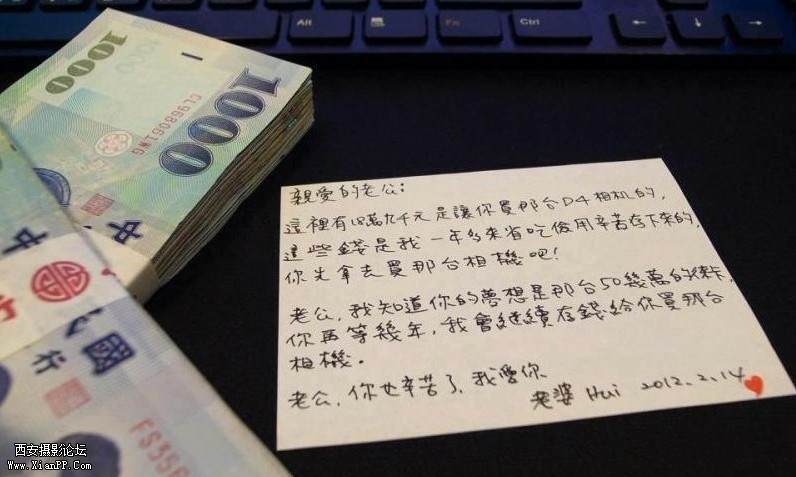 Alt
Fn
Ctrl
1000
1000
CL968061WG
中
FS358
親愛的老公:
這裡有18萬九千元是讓你買那台D4相机的,
這些錢是我一年多來省吃儉用辛苦存下來的,
你先拿去買那台相機吧!
老公,我知道你的夢想是那台50幾萬的徠卡,
你再等幾年,我會繼續存錢給你買那台
相機。
老公,你也辛苦了,我愛你
老婆 Hui 2012.2.14
西安摄影论坛
Www.XianPP.Com